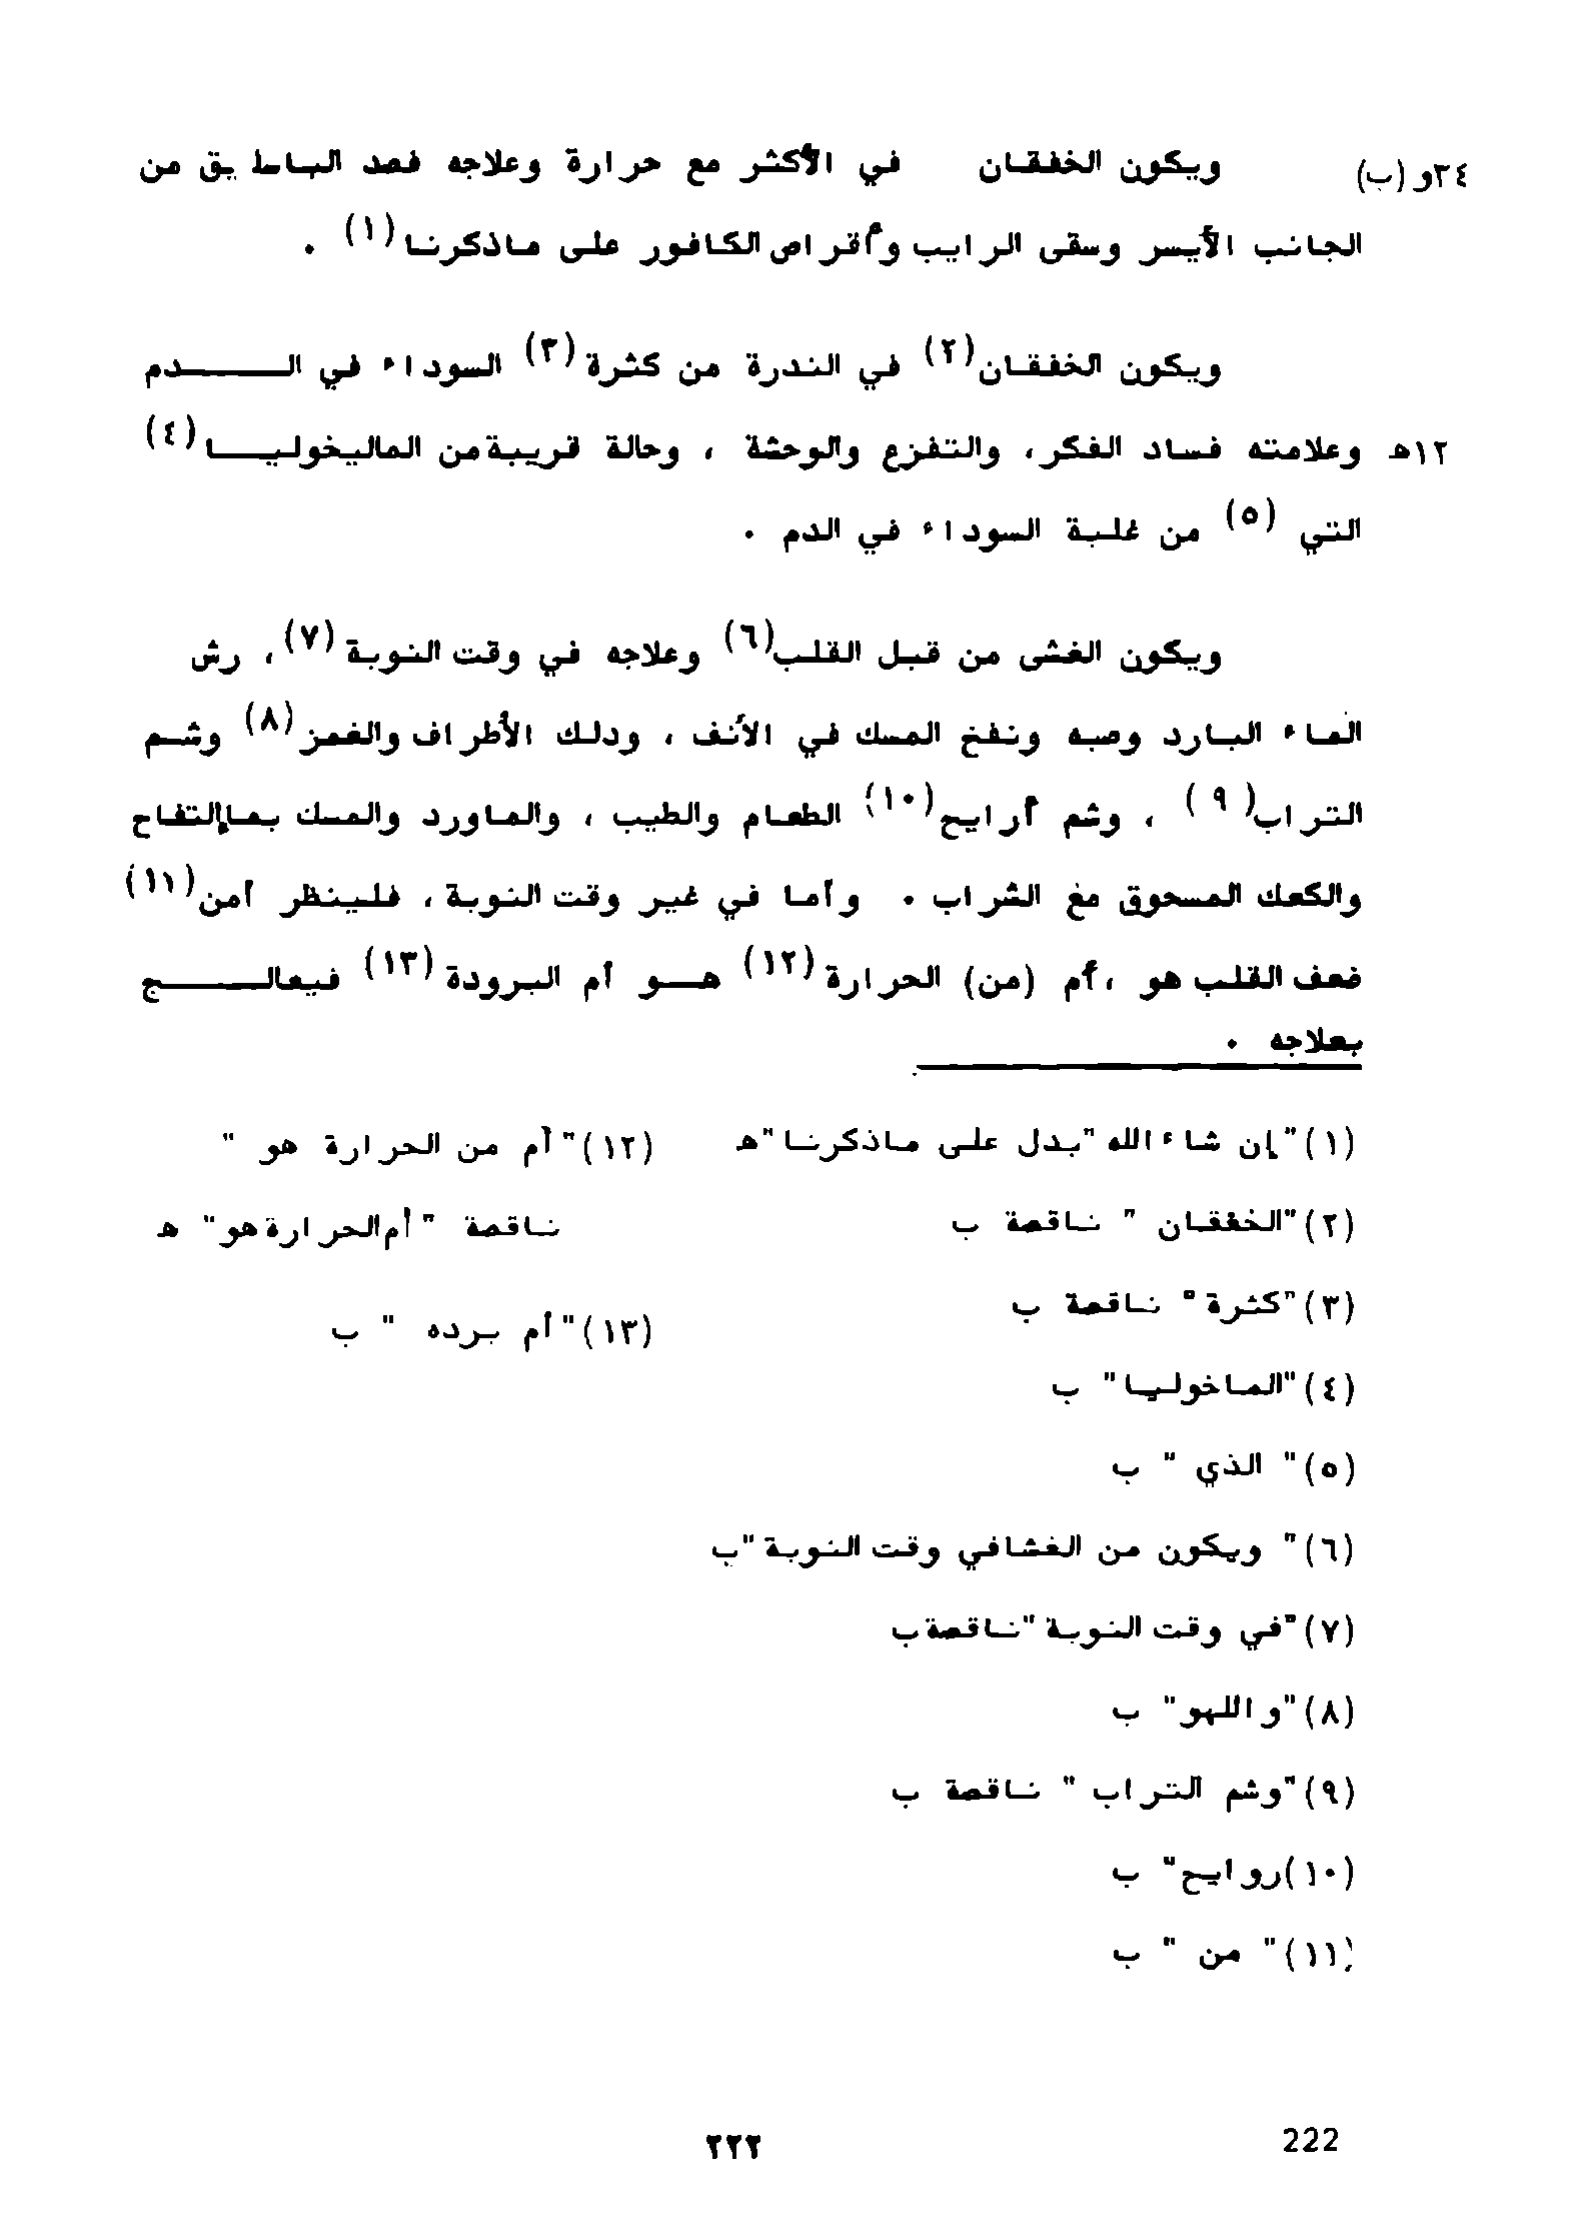 ٣٤و (ب) ويكون الخفقان في الأكثر مع حرارة وعلاجه فصد الباسليق من
الجانب الأيسر وسقى الرايب وأقراص الكافور على ماذكرنا(١) .
ويكون الخفقان(٢) في الندرة من كثرة(٣) السوداء في الـــــدم
١٢هـ وعلامته فساد الفكر، والتفزع والوحشة ، وحالة قريبة من الماليخوليــا(٤)
التي (٥) من غلبة السوداء في الدم .
ويكون الغشى من قبل القلب(٦) وعلاجه في وقت النوبة(٧)، رش
الماء البارد وصبه ونفخ المسك في الأنف ، ودلك الأطراف والغمز(٨) وشـم
التراب(٩) ، وشم أرايح(١٠) الطعام والطيب ، والماورد والمسك بماإلتفاح
والكعك المسحوق مع الشراب . وأما في غير وقت النوبة، فلينظر أمن(١١)
ضعف القلب هو ،أم (من) الحرارة(١٢) هــو أم البرودة(١٣) فيعالـــــج
بعلاجه .
(١)"إن شاء الله"بدل على ماذكرنا"هـ
(٢)"الخفقان " ناقصة ب
(٣)"كثرة" ناقصة ب
(٤)"الماخوليا" ب
(٥)" الذي " ب
(٦)" ويكون من الغشافي وقت النوبة"ب
(٧)"في وقت النوبة"ناقصة ب
(٨)"واللهو" ب
(٩)"وشم التراب " ناقصة ب
(١٠)روايح" ب
(١١)" من " ب
(١٢)"أم من الحرارة هو "
ناقصة " أم الحرارة هو" هـ
(١٣)"أم برده " ب
٢٢٢
222